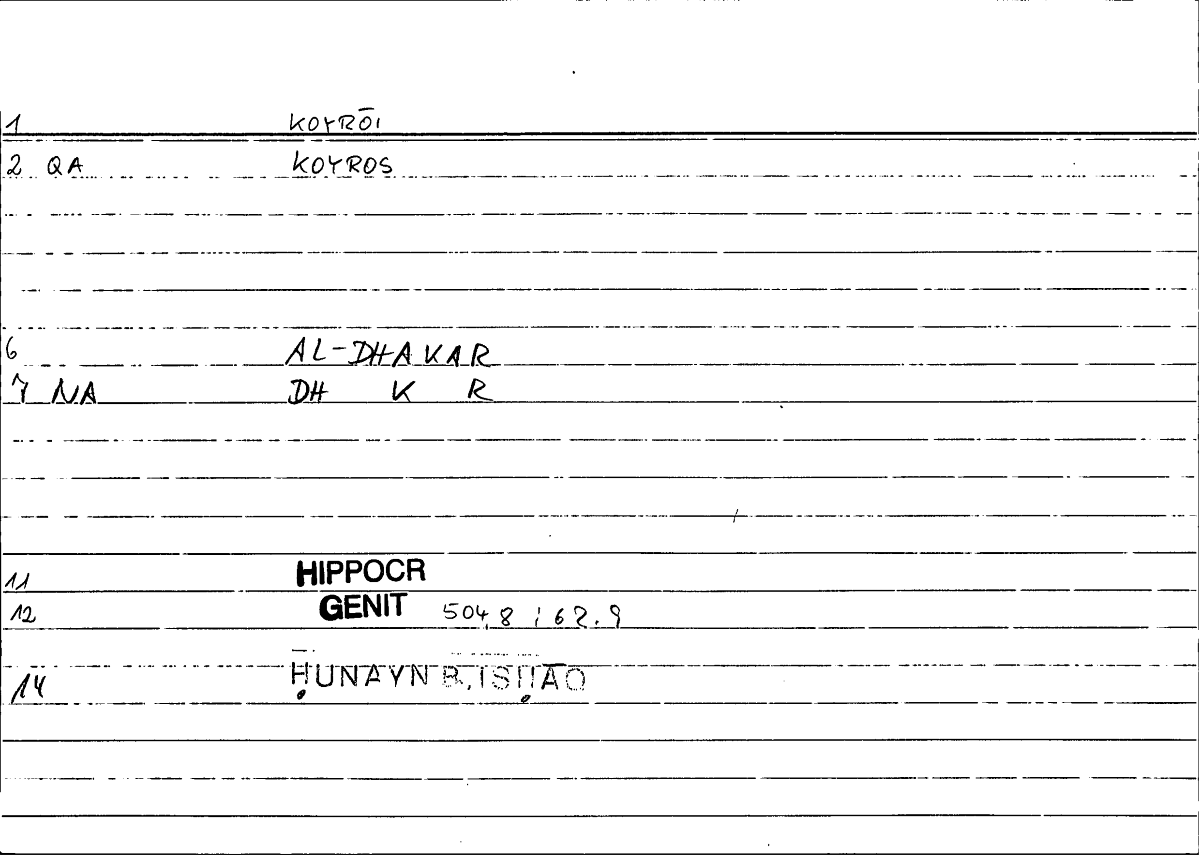 1 KOYRŌI
2 QA KOYROS
6 AL-DHAKAR
7 NA DH K R
11 HIPPOCR
12 GENIT 504,8 ; 62.9
14 ḤUNAYN B. ISḤĀQ